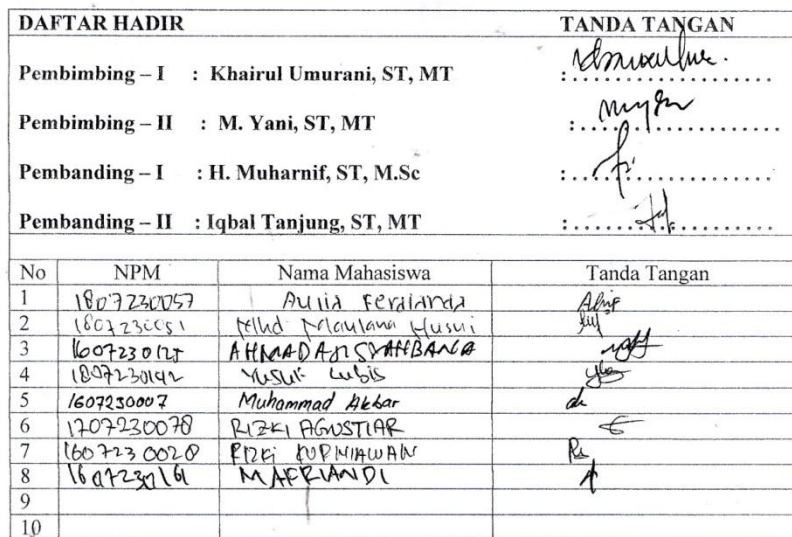 DAFTAR HADIR TANDA TANGAN
Pembimbing – I : Khairul Umurani, ST, MT : ....................
Pembimbing – II : M. Yani, ST, MT : ....................
Pembanding – I : H. Muharnif, ST, M.Sc : ....................
Pembanding – II : Iqbal Tanjung, ST, MT : ....................
No NPM Nama Mahasiswa Tanda Tangan
1 1807230057 Aulia Ferdianda
2 1807230051 Mhd Maulana Husni
3 AHMAD AJI SYAHBANA
4 1807230142 Yusuf Lubis
5 1607230007 Muhammad Akbar
6 1707230078 RIZKI AGUSTIAR
7 1607230028 RIZKI KURNIAWAN
8 MAFRIANDI
9
10